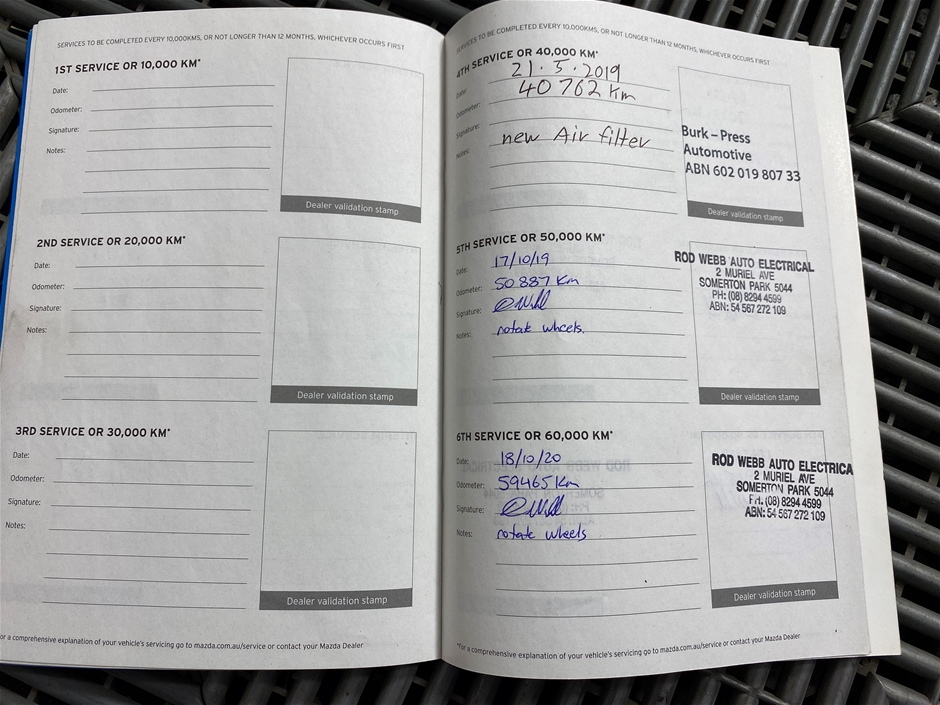 SERVICES TO BE COMPLETED EVERY 10,000KMS, OR NOT LONGER THAN 12 MONTHS, WHICHEVER OCCURS FIRST
1ST SERVICE OR 10,000 KM*
Date:
Odometer:
Signature:
Notes:
Dealer validation stamp
2ND SERVICE OR 20,000 KM*
Date:
Odometer:
Signature:
Notes:
Dealer validation stamp
3RD SERVICE OR 30,000 KM*
Date:
Odometer:
Signature:
Notes:
Dealer validation stamp
or a comprehensive explanation of your vehicle's servicing go to mazda.com.au/service or contact your Mazda Dealer
SERVICES TO BE COMPLETED EVERY 10,000KMS, OR NOT LONGER THAN 12 MONTHS, WHICHEVER OCCURS FIRST
4TH SERVICE OR 40,000 KM*
Date: 21.5.2019
Odometer: 40762 Km
Signature:
Notes: new Air filter
Burk – Press
Automotive
ABN 602 019 807 33
Dealer validation stamp
5TH SERVICE OR 50,000 KM*
Date: 17/10/19
Odometer: 50887 Km
Signature:
Notes: rotate wheels.
ROD WEBB AUTO ELECTRICAL
2 MURIEL AVE
SOMERTON PARK 5044
PH: (08) 8294 4599
ABN: 54 567 272 109
Dealer validation stamp
6TH SERVICE OR 60,000 KM*
Date: 18/10/20
Odometer: 59465 Km
Signature:
Notes: rotate wheels
ROD WEBB AUTO ELECTRICA
2 MURIEL AVE
SOMERTON PARK 5044
PH: (08) 8294 4599
ABN: 54 567 272 109
Dealer validation stamp
*For a comprehensive explanation of your vehicle's servicing go to mazda.com.au/service or contact your Mazda Dealer